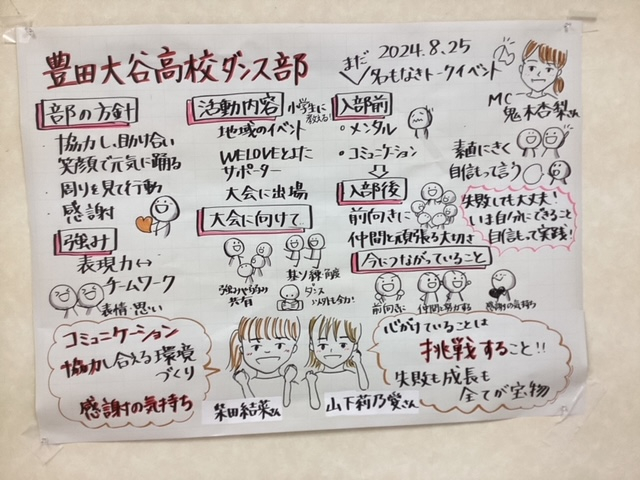 豊田大谷高校ダンス部
まだ
名もなきトークイベント
2024.8.25
MC
鬼木杏梨さん
部の方針
協力し、助け合い
笑顔で元気に踊る
周りを見て行動
感謝
強み
表現力↔
チームワーク
表情・思い
活動内容
小学生に
教える!
地域のイベント
WELOVEとよた
サポーター
大会に出場
大会に向けて
共有
ダンス
入部前
・メンタル
・コミュケーション
入部後
前向きに
仲間と頑張る大切さ
今につながっていること
前向きに
仲間と努力する
感謝の気持ち
素直にきく
自信もって言う
失敗しても大丈夫!
いま自分にできること
自信もって実践!
コミュニケーション
協力し合える環境
づくり
感謝の気持ち
柴田結菜さん
山下莉乃愛さん
心がけていることは
挑戦すること!!
失敗も成長も
全てが宝物